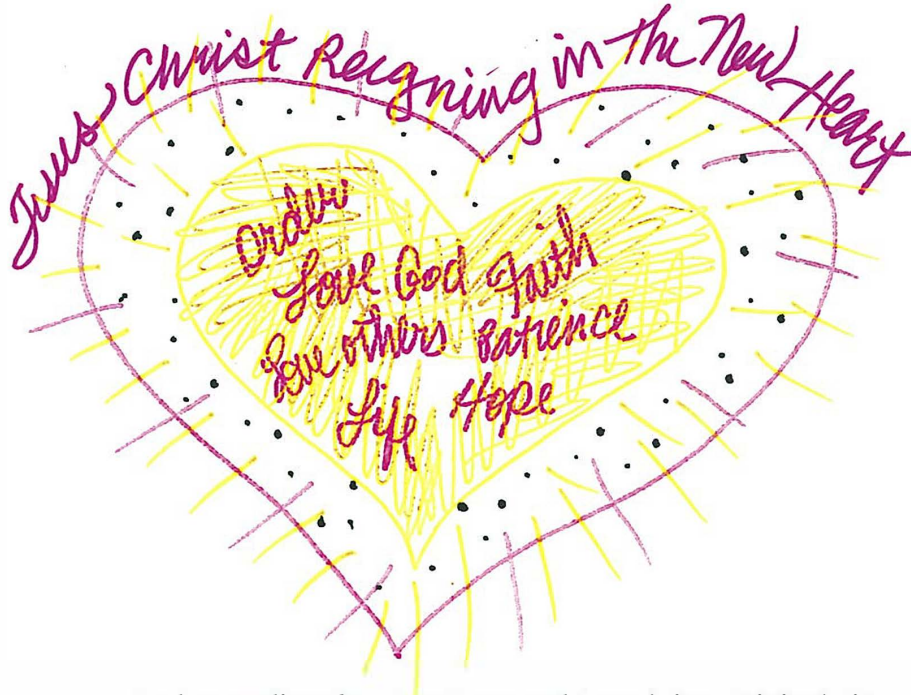 Jesus Christ Reigning in The New Heart
Order
Love God Faith
Love others Patience
Life Hope